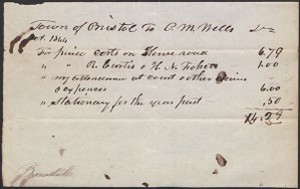 Town of Bristol To P. M. Wells Dr
Oct. 1844
For price costs on Stone road 6.79
" " R. Curtis & H. N. 1.00
" my attendance at court & other
& expences 6.00
" Stationary for the year past .50
14.29